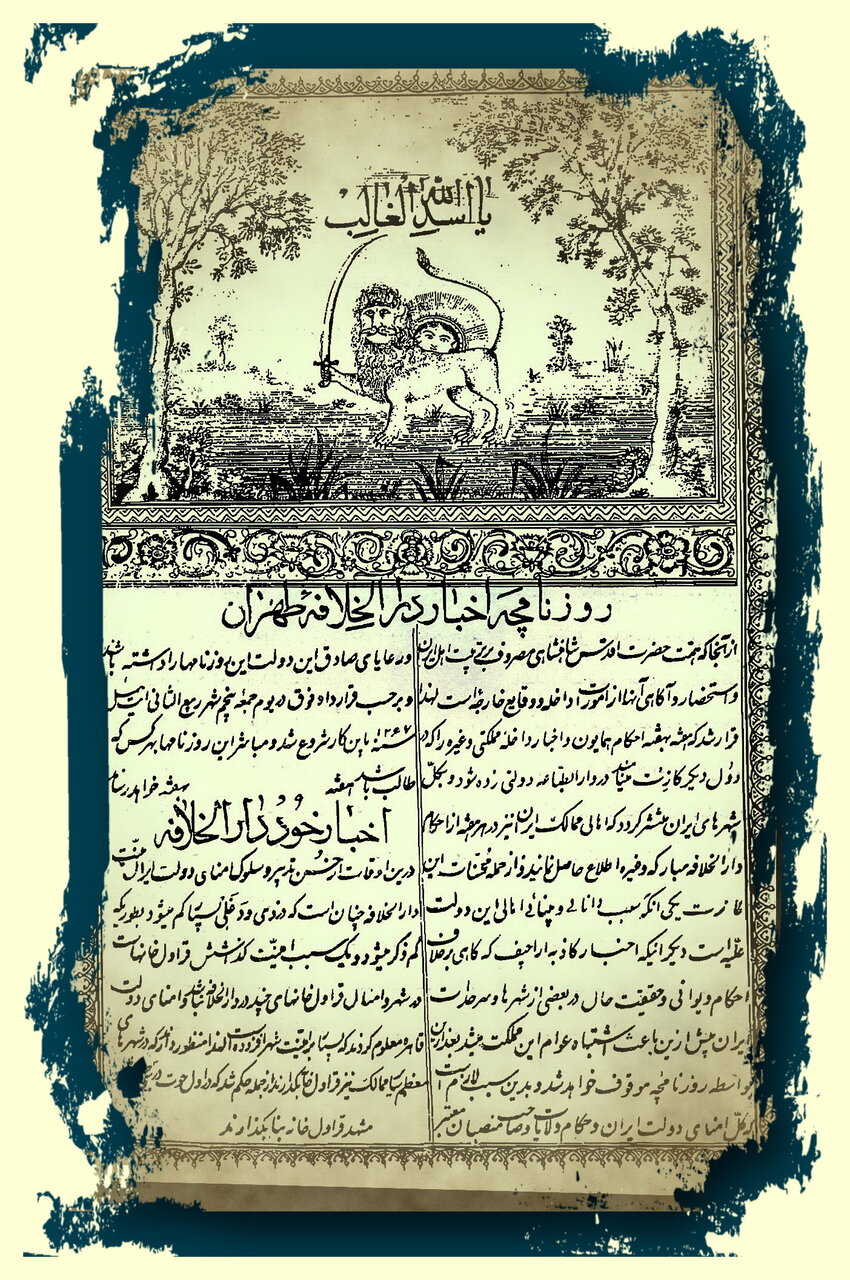 یا اسد الله الغالب
روزنامچه اخبار دار الخلافهٔ طهران
از آنجا که همت حضرت اقدس شاهنشاهی مصروف بر تربیت اهل ایران
و استحضار و آگاهی آنها از امورات داخله و وقایع خارجه است لهذا
قرار شد که هفته بهفته احکام همایون و اخبار داخله مملکتی و غیره را که در
دول دیگر کازت مینامند در دار الطباعه دولتی زده شود و بکلّ
شهرهای ایران منتشر گردد که اهالی ممالک ایران نیز در هر هفته از احکام
دار الخلافه مبارکه و غیره اطلاع حاصل نمایند و از جمله محسنات این
کازت یکی آنکه سبب دانائی و بینائی اهالی این دولت
علّیه است دیگر اینکه اخبار کاذبه اراجیف که گاهی برخلاف
احکام دیوانی و حقیقت حال در بعضی از شهرها و سرحدات
ایران پیش ازین باعث اشتباه عوام این مملکت میشد بعد ازین
بواسطه روزنامچه موقوف خواهد شد و بدین سبب لازم است
که کلّ امنای دولت ایران و حکام ولایات و صاحب منصبان معتبر
و رعایای صادق این دولت این روزنامها را داشته باشند
و بر حسب قرارداد فوق در یوم جمعه پنجم شهر ربیع الثانی ایت ئیل
سنه ۱۲۶۷ باین کار شروع شد و مباشر این روزنامها بهر کس که
طالب باشد هفته بهفته خواهد رساند
اخبار خود دار الخلافه
درین اوقات از حسن تدبیر و سلوک امنای دولت ایران امنیّت
دار الخلافه چنان است که دزدی و دغلی بسیار کم میشود بطوریکه
کم ذکر میشود و یک سبب امنیّت گذاشتن قراول خانهاست
در شهر و امسال قراول خانهای چند در دار الخلافه بنا شد و امنای دولت
قاهره معلوم کردند که بسیار بر امنیّت شهر افزوده است لهذا منظور دارند که در شهرهای
معظم سایر ممالک نیز قراول خانه بگذارند از جمله حکم شد که در اول حوت در
مشهد قراول خانه بنا بگذارند